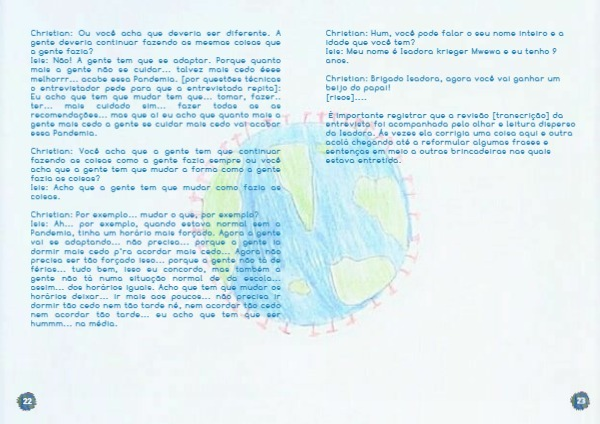 Christian: Ou você acha que deveria ser diferente. A
gente deveria continuar fazendo as mesmas coisas que
a gente fazia?
Isis: Não! A gente tem que se adaptar. Porque quanto
mais a gente não se cuidar... talvez mais cedo ésse
melhorrr... acabe essa Pandemia. [por questões técnicas
o entrevistador pede para que a entrevistada repita]:
Eu acho que tem que mudar tem que... tomar, fazer..
ter... mais cuidado sim... fazer todas as as
recomendações... mas que aí eu acho que quanto mais a
gente mais cedo a gente se cuidar mais cedo vai acabar
essa Pandemia.
Christian: Você acha que a gente tem que continuar
fazendo as coisas como a gente fazia sempre ou você
acha que a gente tem que mudar a forma como a gente
fazia as coisas?
Isis: Acho que a gente tem que mudar como fazia as
coisas.
Christian: Por exemplo... mudar o que, por exemplo?
Isis: Ah... por exemplo, quando estava normal sem a
Pandemia, tinha um horário mais forçado. Agora a gente
vai se adaptando... não precisa... porque a gente ia
dormir mais cedo p'ra acordar mais cedo... Agora não
precisa ser tão forçado isso... porque a gente não tá de
férias... tudo bem, isso eu concordo, mas também a
gente não tá numa situação normal de da escola...
assim... dos horários iguais. Acho que tem que mudar os
horários deixar... ir mais aos poucos... não precisa ir
dormir tão cedo nem tão tarde né, nem acordar tão cedo
nem acordar tão tarde... eu acho que tem que ser
hummm... na média.
22
Christian: Hum, você pode falar o seu nome inteiro e a
idade que você tem?
Isis: Meu nome é Isadora krieger Mwewa e eu tenho 9
anos.
Christian: Brigado Isadora, agora você vai ganhar um
beijo do papai!
[risos]....
É importante registrar que a revisão [transcrição] da
entrevista foi acompanhada pelo olhar e leitura disperso
da Isadora. Às vezes ela corrigia uma coisa aqui e outra
acolá chegando até a reformular algumas frases e
sentenças em meio a outras brincadeiras nas quais
estava entretida.
23